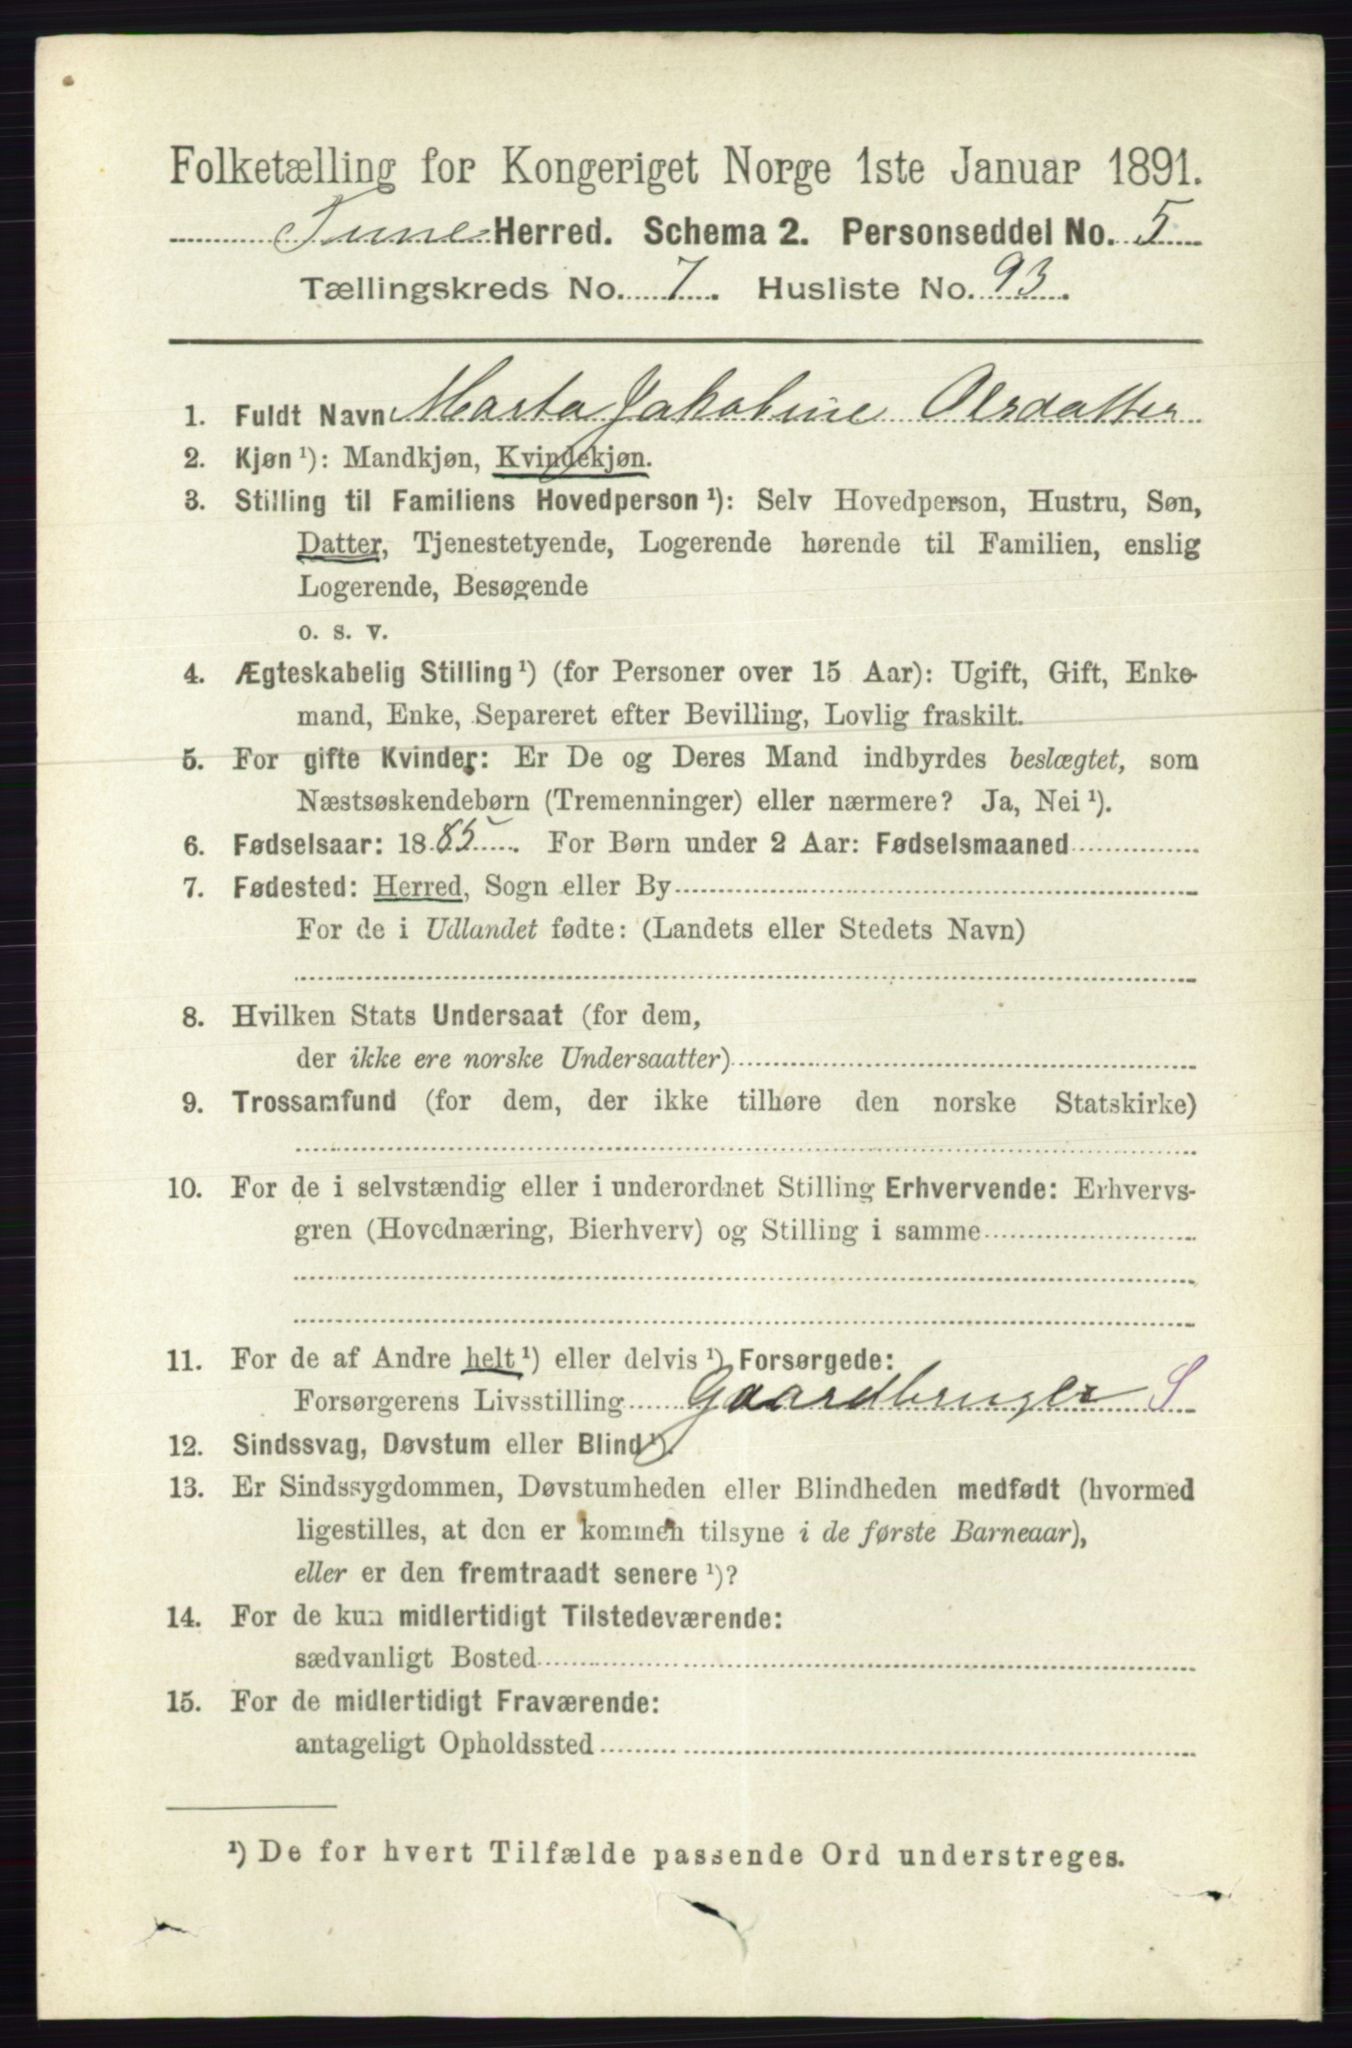 Folketælling for Kongeriget Norge 1ste Januar 1891.
Tune Herred. Schema 2. Personseddel No. 5
Tællingskreds No. 7. Husliste No. 93.
1. Fuldt Navn Marta Jakobine Olsdatter
2. Kjøn ¹): Mandkjøn, Kvindekjøn.
3. Stilling til Familiens Hovedperson ¹): Selv Hovedperson, Hustru, Søn,
Datter, Tjenestetyende, Logerende hørende til Familien, enslig
Logerende, Besøgende
o. s. v.
4. Ægteskabelig Stilling ¹) (for Personer over 15 Aar): Ugift, Gift, Enke-
mand, Enke, Separeret efter Bevilling, Lovlig fraskilt.
5. For gifte Kvinder: Er De og Deres Mand indbyrdes beslægtet, som
Næstsøskendebørn (Tremenninger) eller nærmere? Ja, Nei ¹).
6. Fødselsaar: 1885. For Børn under 2 Aar: Fødselsmaaned
7. Fødested: Herred, Sogn eller By
For de i Udlandet fødte: (Landets eller Stedets Navn)
8. Hvilken Stats Undersaat (for dem,
der ikke ere norske Undersaatter)
9. Trossamfund (for dem, der ikke tilhøre den norske Statskirke)
10. For de i selvstændig eller i underordnet Stilling Erhvervende: Erhvervs-
gren (Hovednæring, Bierhverv) og Stilling i samme
11. For de af Andre helt ¹) eller delvis ¹) Forsørgede:
Forsørgerens Livsstilling Gaardbruger S
12. Sindssvag, Døvstum eller Blind ¹).
13. Er Sindssygdommen, Døvstumheden eller Blindheden medfødt (hvormed
ligestilles, at den er kommen tilsyne i de første Barneaar),
eller er den fremtraadt senere ¹)?
14. For de kun midlertidigt Tilstedeværende:
sædvanligt Bosted
15. For de midlertidigt Fraværende:
antageligt Opholdssted
¹) De for hvert Tilfælde passende Ord understreges.